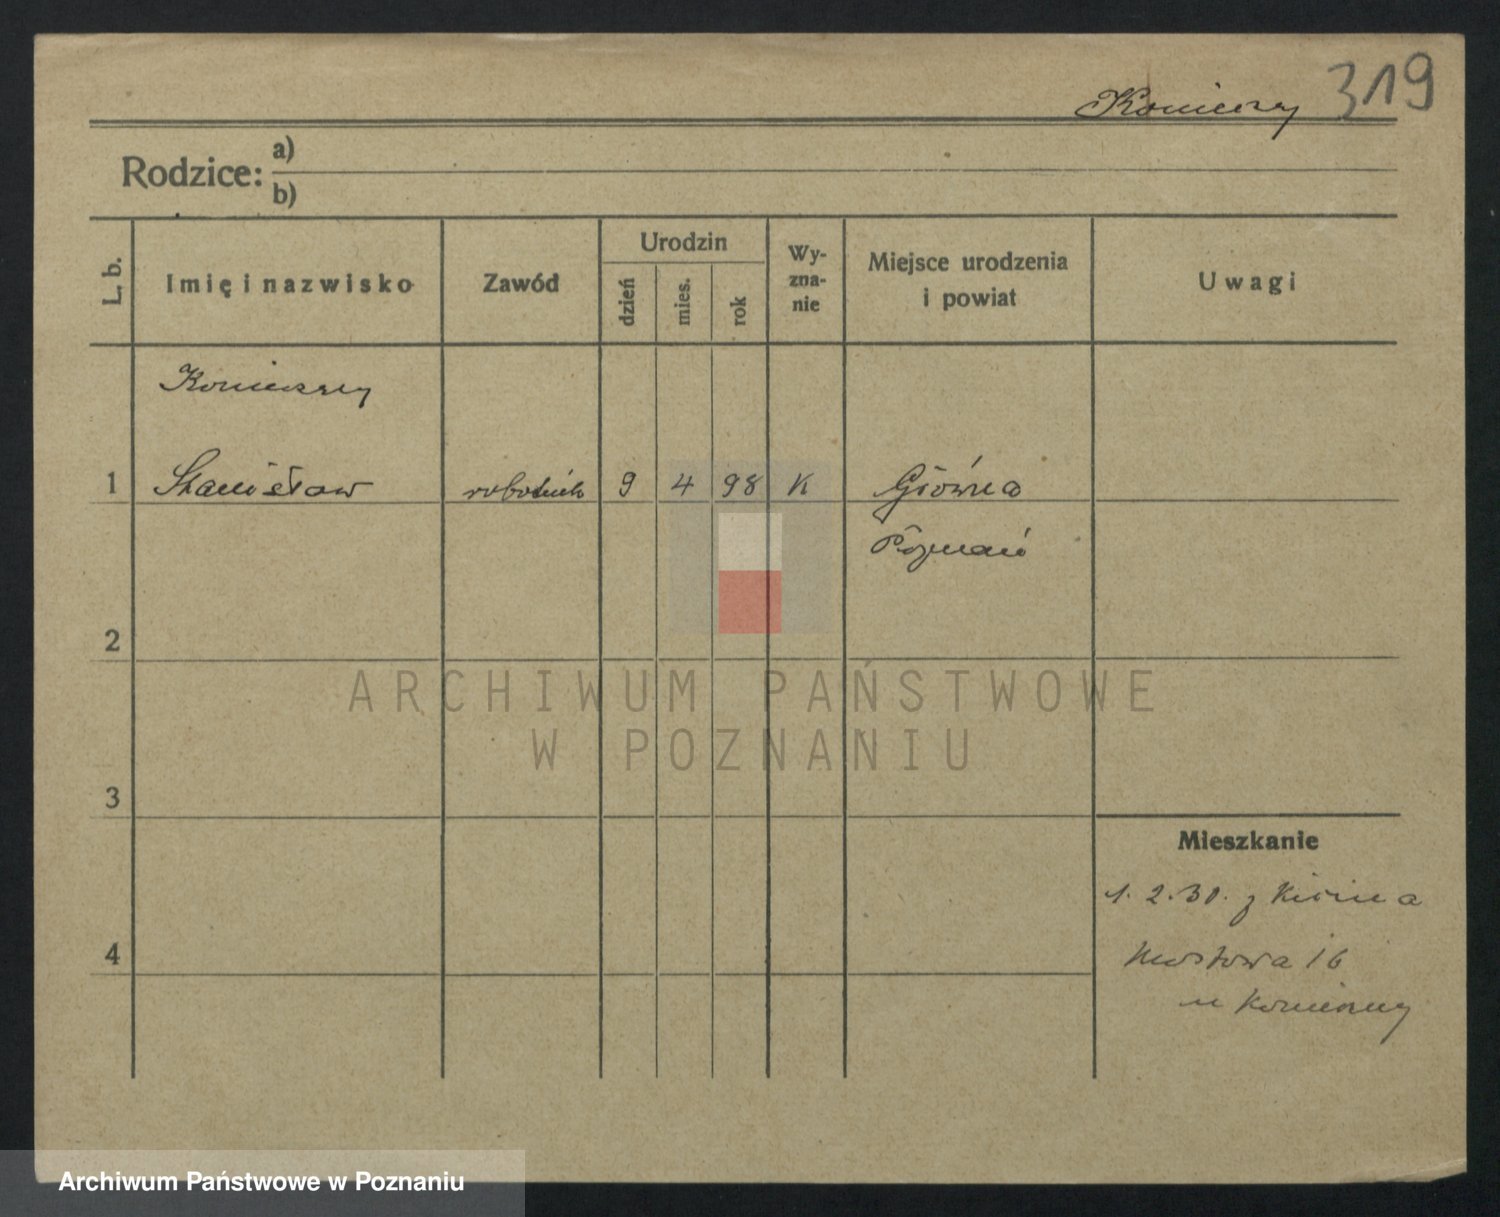 Konieczny 319
Rodzice: a)
b)
L. b.
Imię i nazwisko
Zawód
Urodzin
dzień
mies.
rok
Wy-
zna-
nie
Miejsce urodzenia
i powiat
Uwagi
Konieczny
1 Stanisław robotnik 9 4 98 K Główna
Poznań
2
3
4
Mieszkanie
1.2.30. z
Mostowa 16
u Konieczny
ARCHIWUM PAŃSTWOWE
W POZNANIU
Archiwum Państwowe w Poznaniu